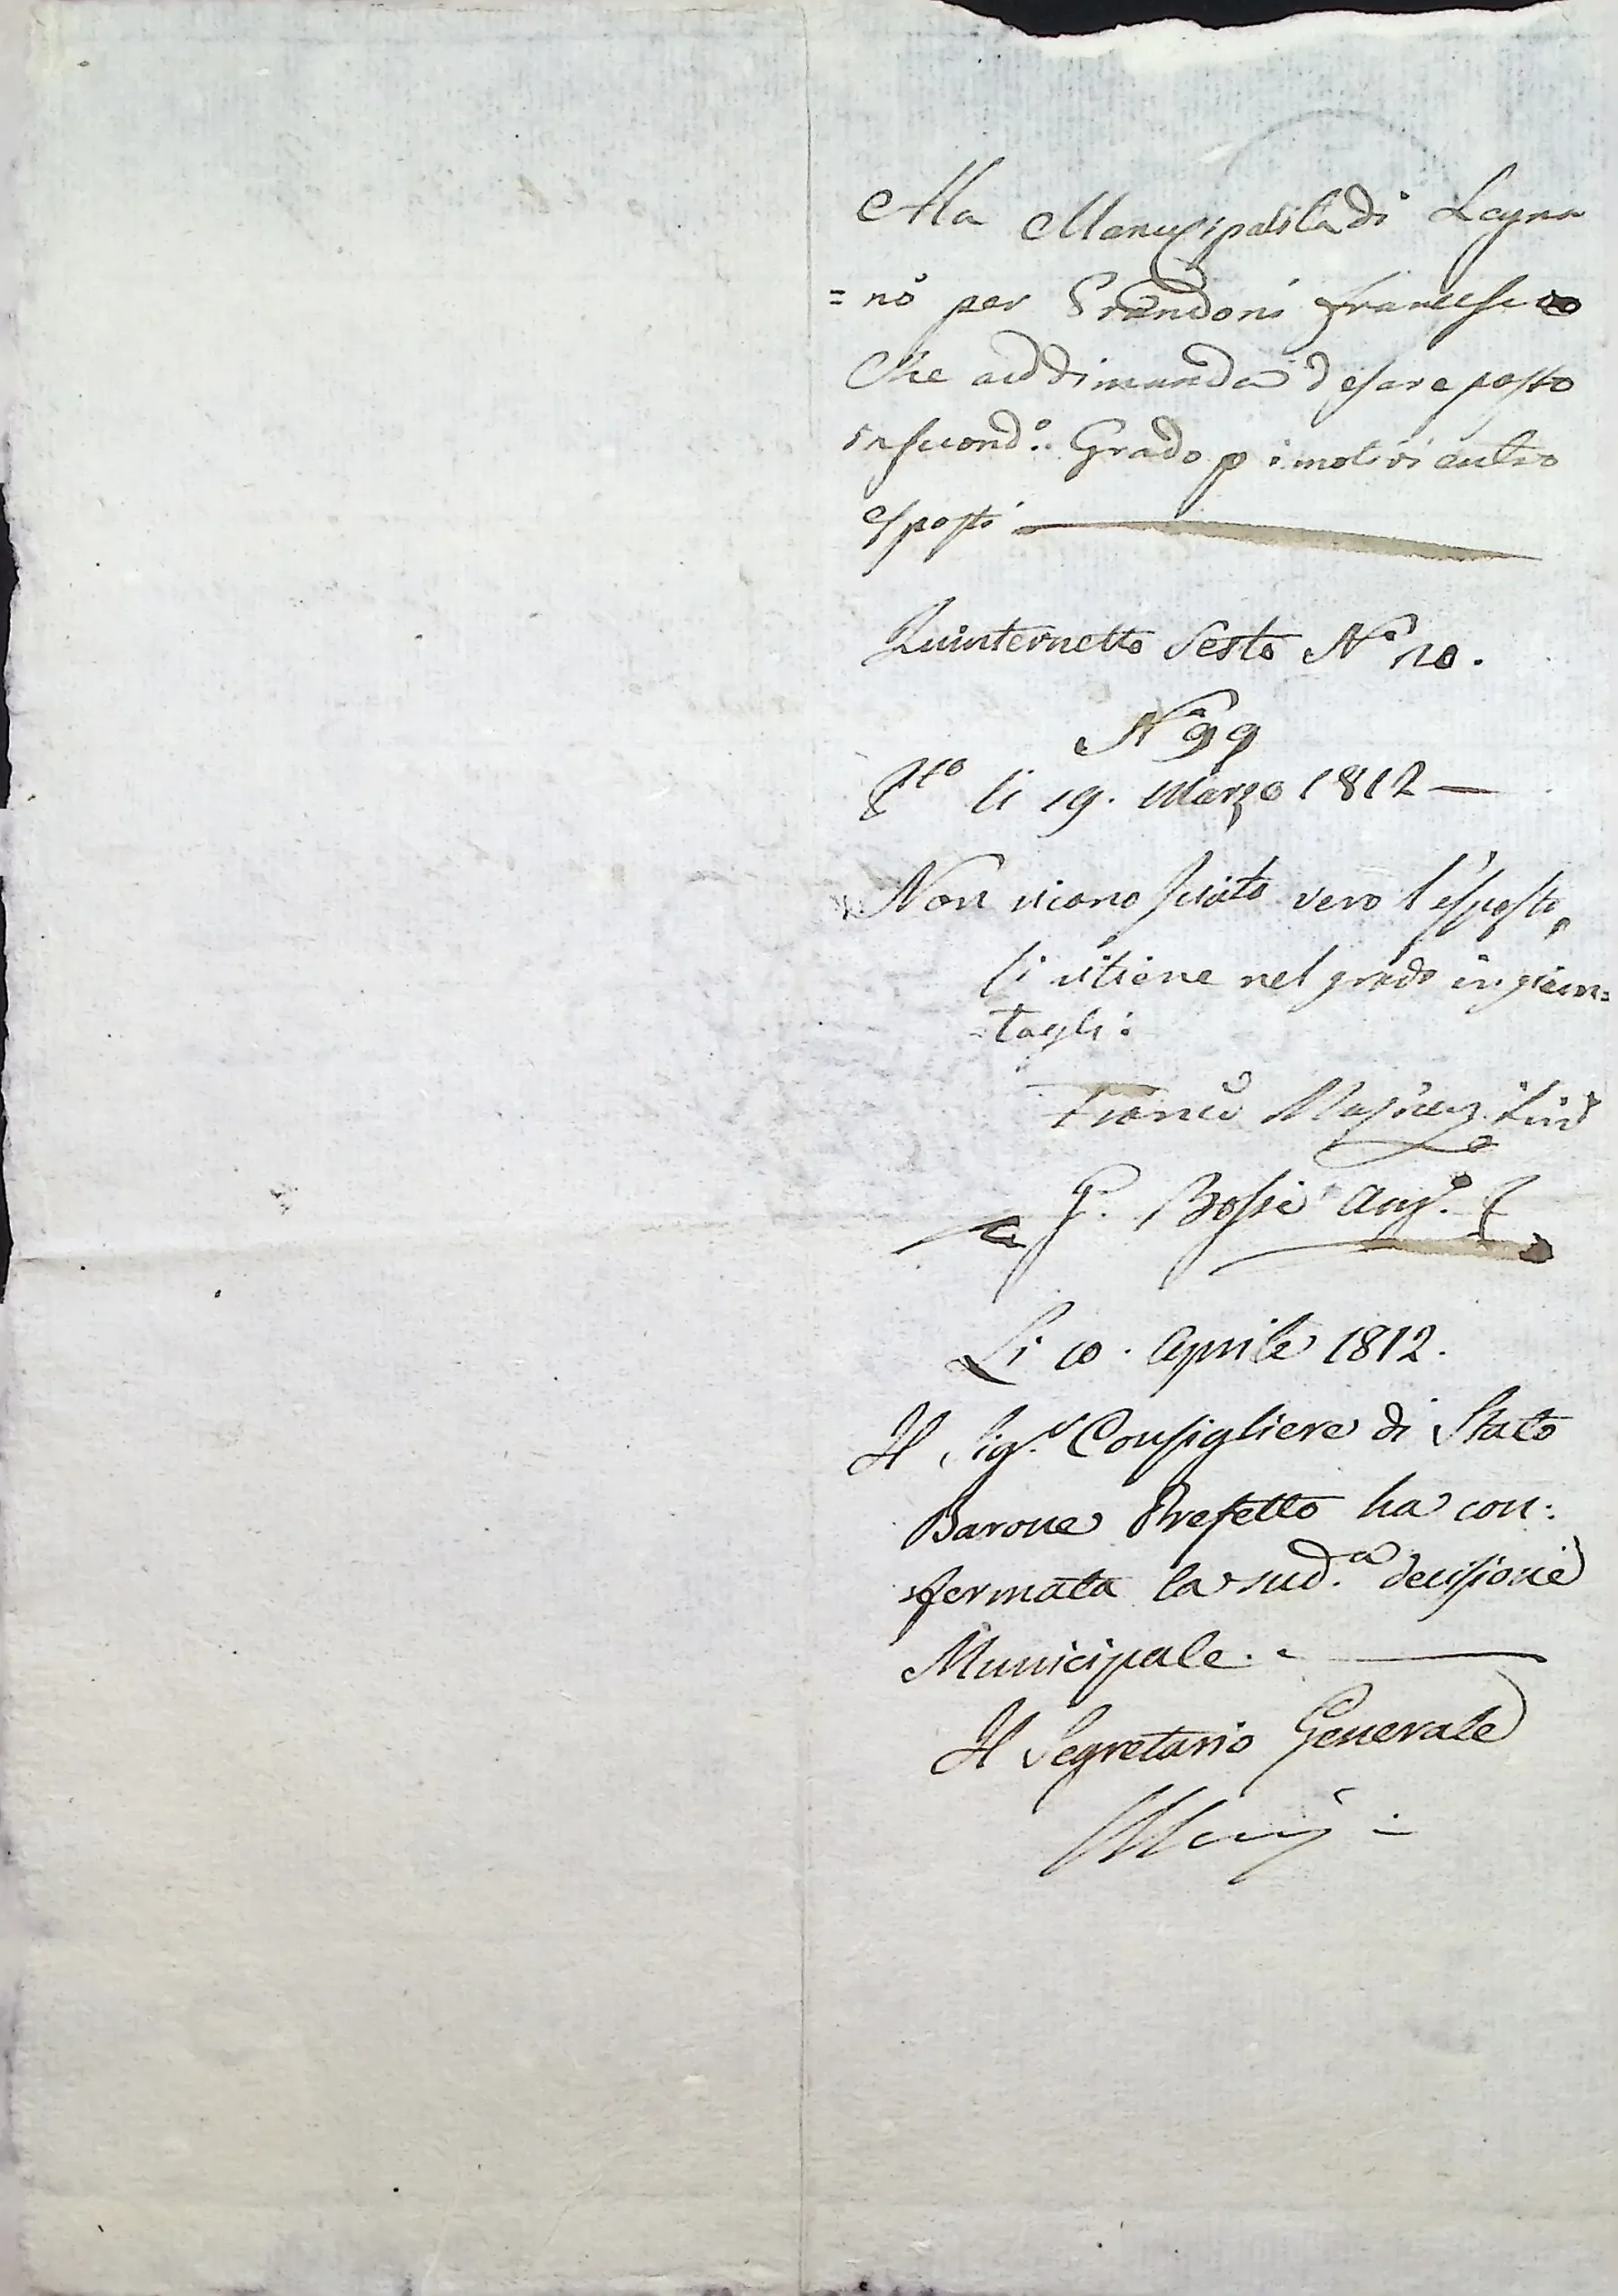 Alla Manucipalita di Legna
=nō per Prandoni francescho
Che addimanda d'esare posto
in secondo. Grado p i motivi entro
esposti
Quinternetto Sesto N° 10.
N° 99
li 19. Marzo 1812 —
Non riconosciuto vero l'esposto,
si ritiene nel grado ingiun=
=togli:
G. Bossi
Li 10. Aprile 1812.
Il Sig.r Consigliere di Stato
Barone Prefetto ha con:
fermata la sud.a decisione
Municipale.
Il Segretario Generale